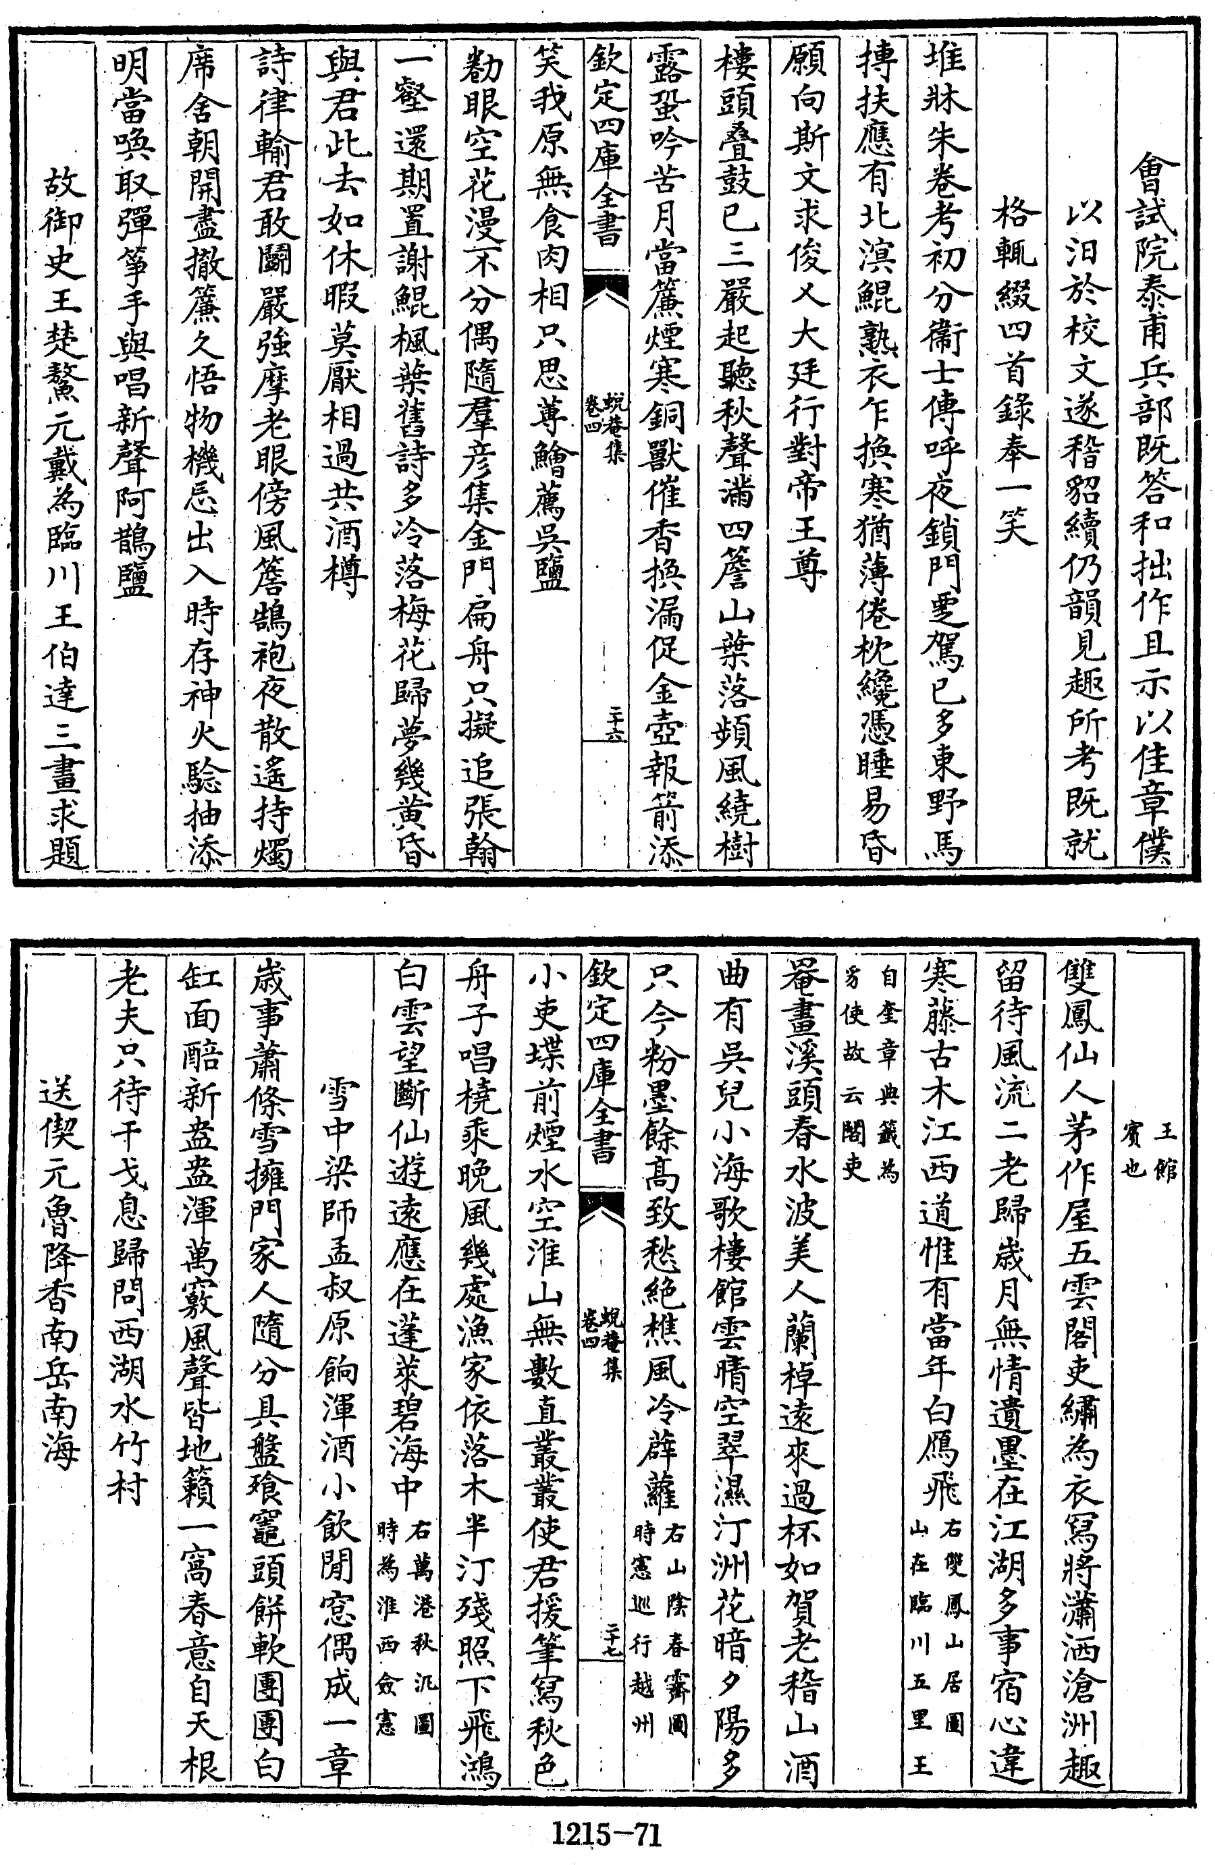 會試院泰甫兵部既答和拙作且示以佳章僕
以汨於校文遂稽貂續仍韻見趣所考既就
格輒綴四首錄奉一笑
堆牀朱卷考初分衞士傳呼夜鎖門雯駕已多東野馬
摶扶應有北溟鯤熟衣乍換寒猶薄倦枕纔憑睡易昏
願向斯文求俊乂大廷行對帝王尊
樓頭疊鼓已三嚴起聽秋聲滿四簷山葉落頻風繞樹
露蛩吟苦月當簾煙寒銅獸催香換漏促金壺報箭添
欽定四庫全書
蛻菴集
卷四
二十六
笑我原無食肉相只思蓴鱠薦吳鹽
勸眼空花漫不分偶隨羣彦集金門扁舟只擬追張翰
一壑還期置謝鯤楓葉舊詩多冷落梅花歸夢幾黄昏
與君此去如休暇莫厭相過共酒樽
詩律輸君敢鬬嚴強摩老眼傍風簷鵠袍夜散遙持燭
席舍朝開盡撤簾久悟物機忘出入時存神火驗抽添
明當喚取彈箏手與唱新聲阿鵲鹽
故御史王楚鰲元戴為臨川王伯達三畫求題
王館
賓也
雙鳳仙人茅作屋五雲閣吏繡為衣寫將瀟洒滄洲趣
留待風流二老歸歲月無情遺墨在江湖多事宿心違
寒藤古木江西道惟有當年白鴈飛
右雙鳳山居圖
山在臨川五里王
自奎章典籤為
豸使故云閣吏
罨畫溪頭春水波美人蘭棹遠來過杯如賀老稽山酒
曲有吳兒小海歌樓館雲晴空翠濕汀洲花暗夕陽多
只今粉墨餘高致愁絶樵風冷薜蘿
右山陰春霽圖
時憲巡行越州
欽定四庫全書
蛻菴集
卷四
二十七
小吏堞前煙水空淮山無數直叢叢使君援筆寫秋色
舟子唱橈乘晚風幾處漁家依落木半汀殘照下飛鴻
白雲望斷仙遊遠應在蓬萊碧海中
右萬港秋汎圖
時為淮西僉憲
雪中梁師孟叔原餉渾酒小飲閒窓偶成一章
歲事蕭條雪擁門家人隨分具盤飱竈頭餅軟團團白
缸面醅新盎盎渾萬竅風聲皆地籟一窩春意自天根
老夫只待干戈息歸問西湖水竹村
送偰元魯降香南岳南海
1215-71